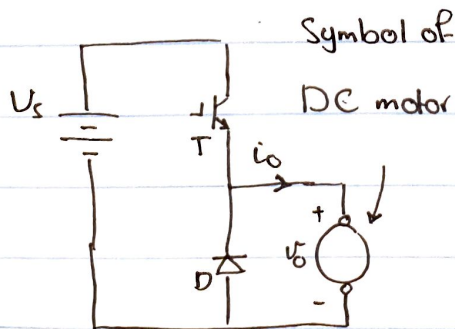 Symbol of
DC motor
Us
T
io
+
vo
D
-